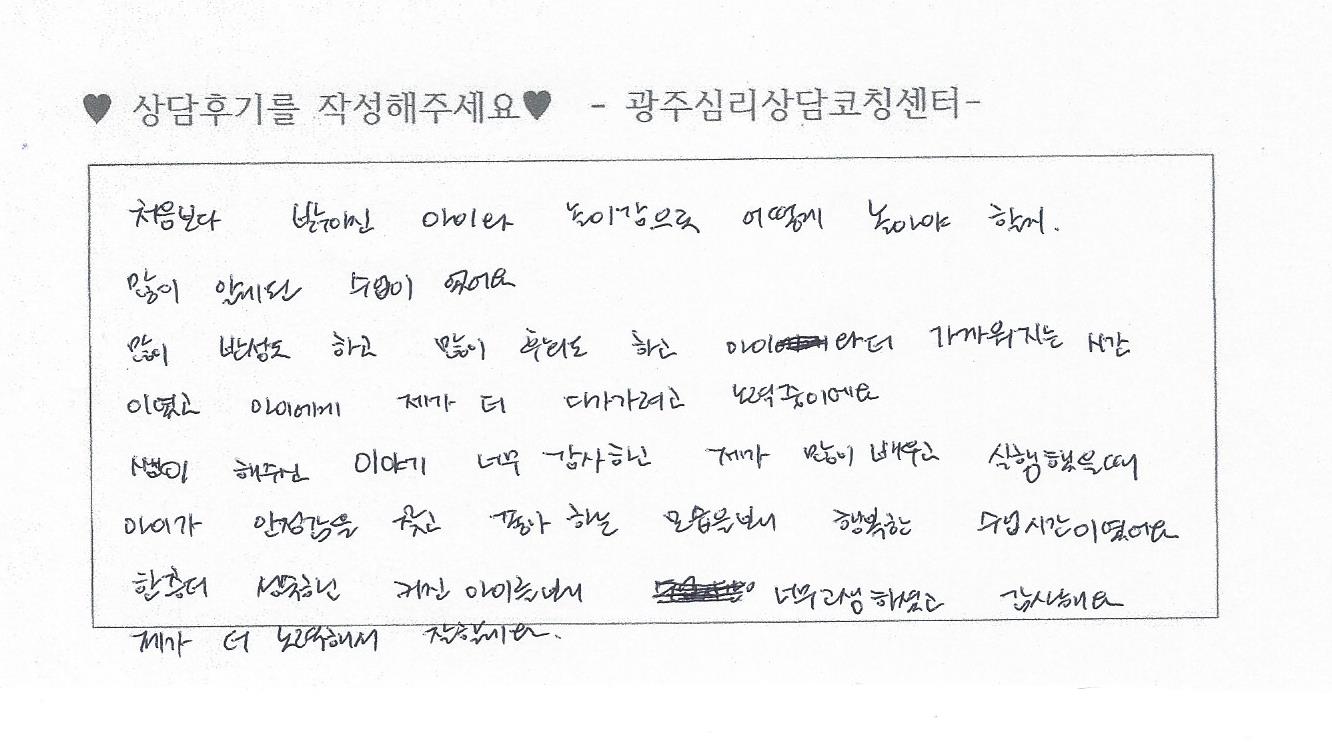 ♥ 상담후기를 작성해주세요♥ - 광주심리상담코칭센터-
처음보다 아이와 놀이감으로 어떻게 놀아야 할찌.
많이 알게된 수업이 였어요
많이 반성도 하고 많이 후회도 하고 아이 와더 가까워지는 시간
이였고 아이에게 제가 더 다가가려고 노력중이에요
쌤이 해주신 이야기 너무 감사하고 제가 많이 배우고 실행했을때
아이가 안정감을 찾고 좋아 하는 모습을보니 행복한 수업시간이였어요
한층더 커진 아이를보니 너무고생하셨고 감사해요
제가 더 노력해서 잘할께요.